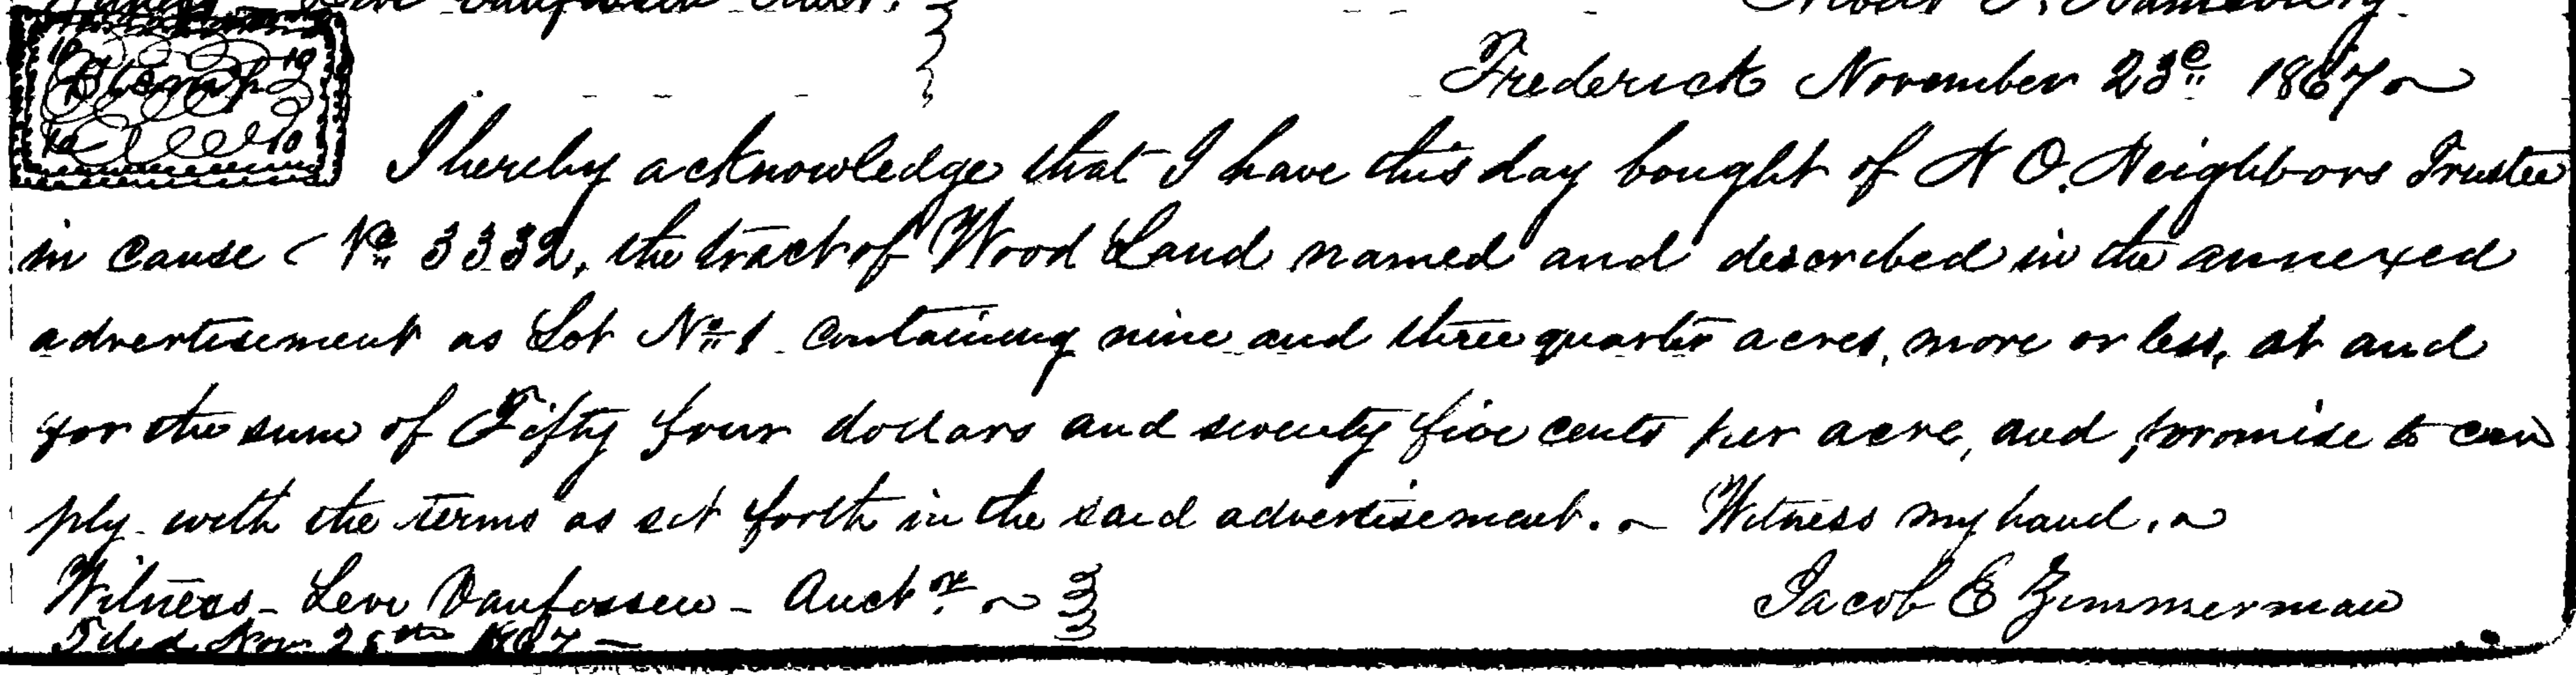 Frederick November 23d 1867
10 10
Stamp
10 10
I hereby acknowledge that I have this day bought of N O. Neighbors Trustee
in cause No 3332, the tract of Wood Land named and described in the annexed
advertisement as Lot No 1 containing nine and three quarter acres, more or less, at and
for the sum of Fifty four dollars and seventy five cents per acre, and promise to com
ply with the terms as set forth in the said advertisement. Witness my hand.
Witness - Levi Vanfossen - Auctr
Jacob E Zimmerman
Filed Nov 25th 1867 -